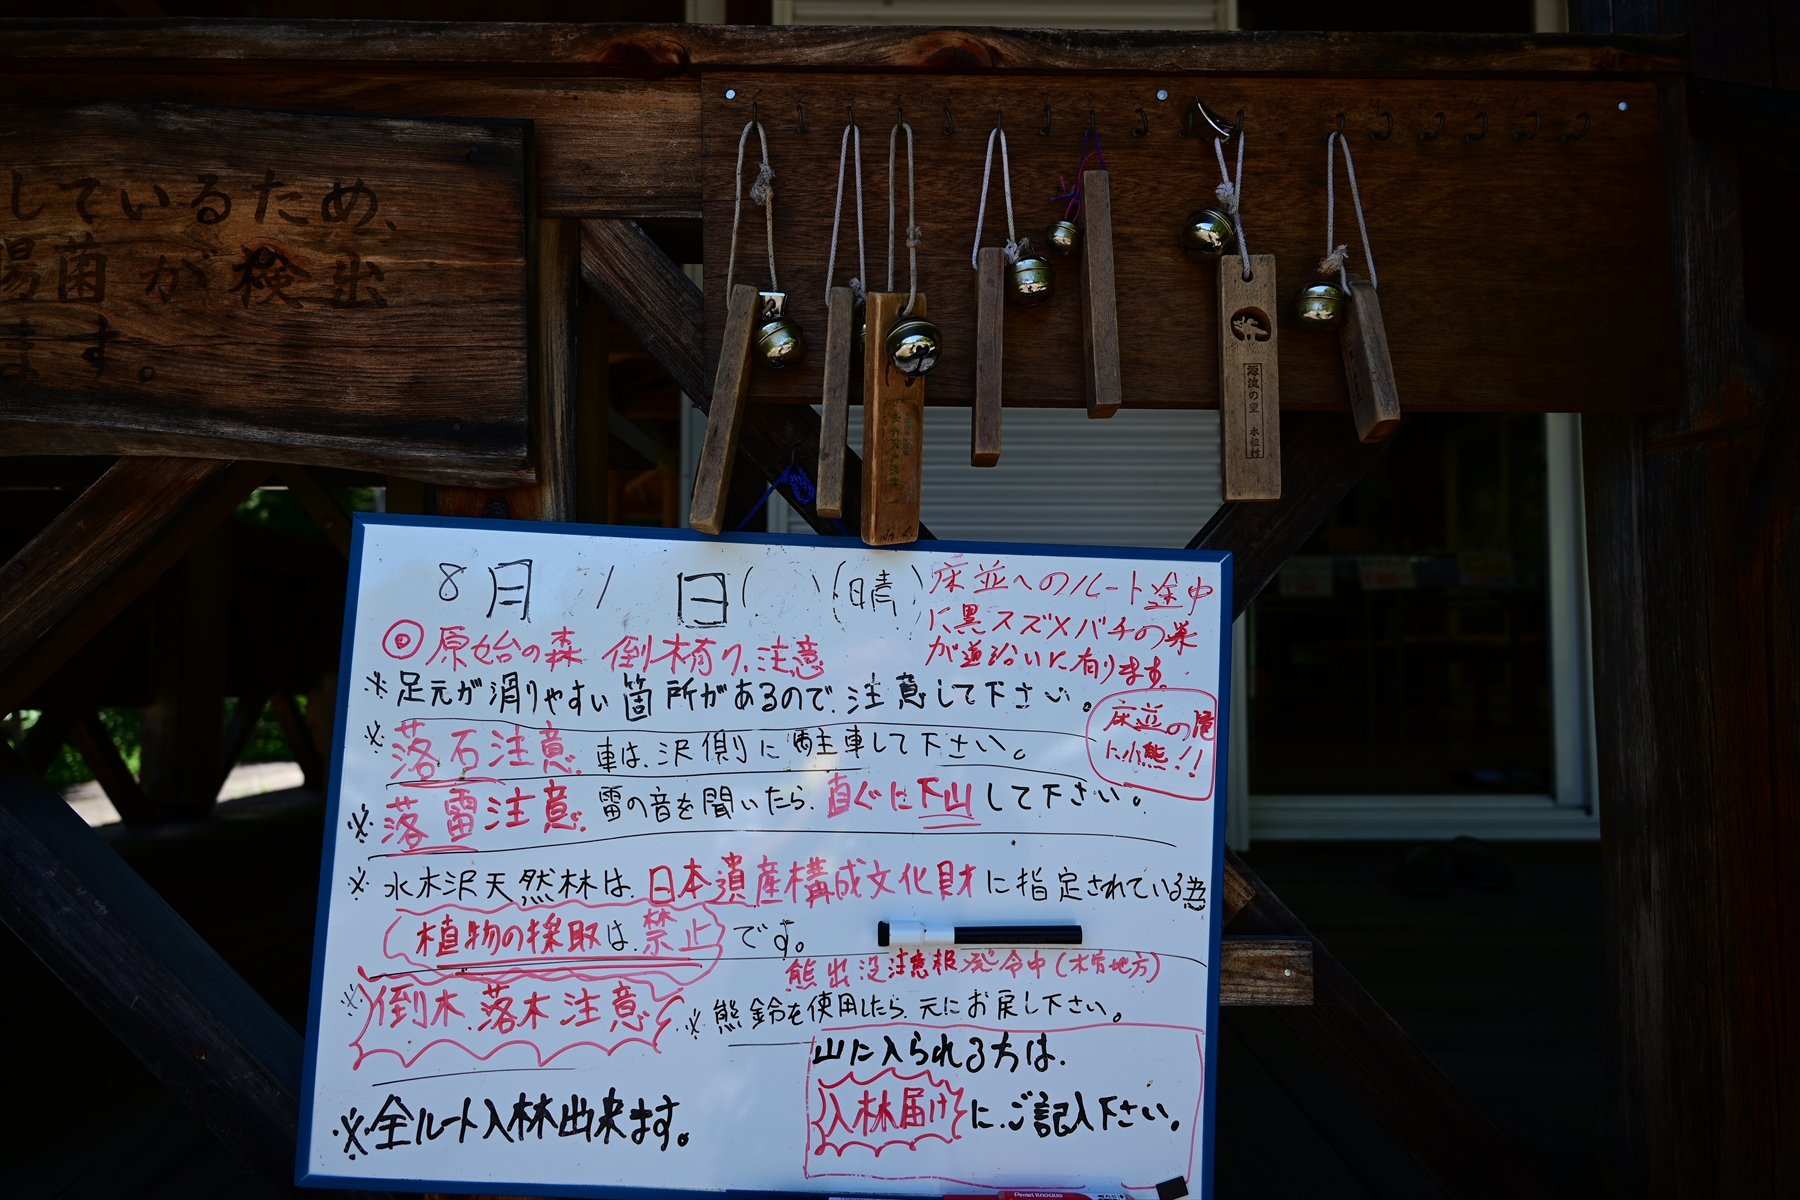 しているため、
腸菌が検出
ます。
源流の里 木祖村
8月1日( )(晴)
床並へのルート途中
に黒スズメバチの巣
が道沿いに有ります。
◎原始の森 倒木有り、注意
※足元が滑りやすい箇所があるので、注意して下さい。
床並の滝
に小熊!!
※落石注意、車は、沢側に駐車して下さい。
※落雷注意、雷の音を聞いたら、直ぐに下山して下さい。
※水木沢天然林は、日本遺産構成文化財に指定されている為
(植物の採取は、禁止)です。
熊出没注意報発令中(木曽地方)
※倒木、落木注意
※熊鈴を使用したら、元にお戻し下さい。
山に入られる方は、
入林届けに、ご記入下さい。
※全ルート入林出来ます。